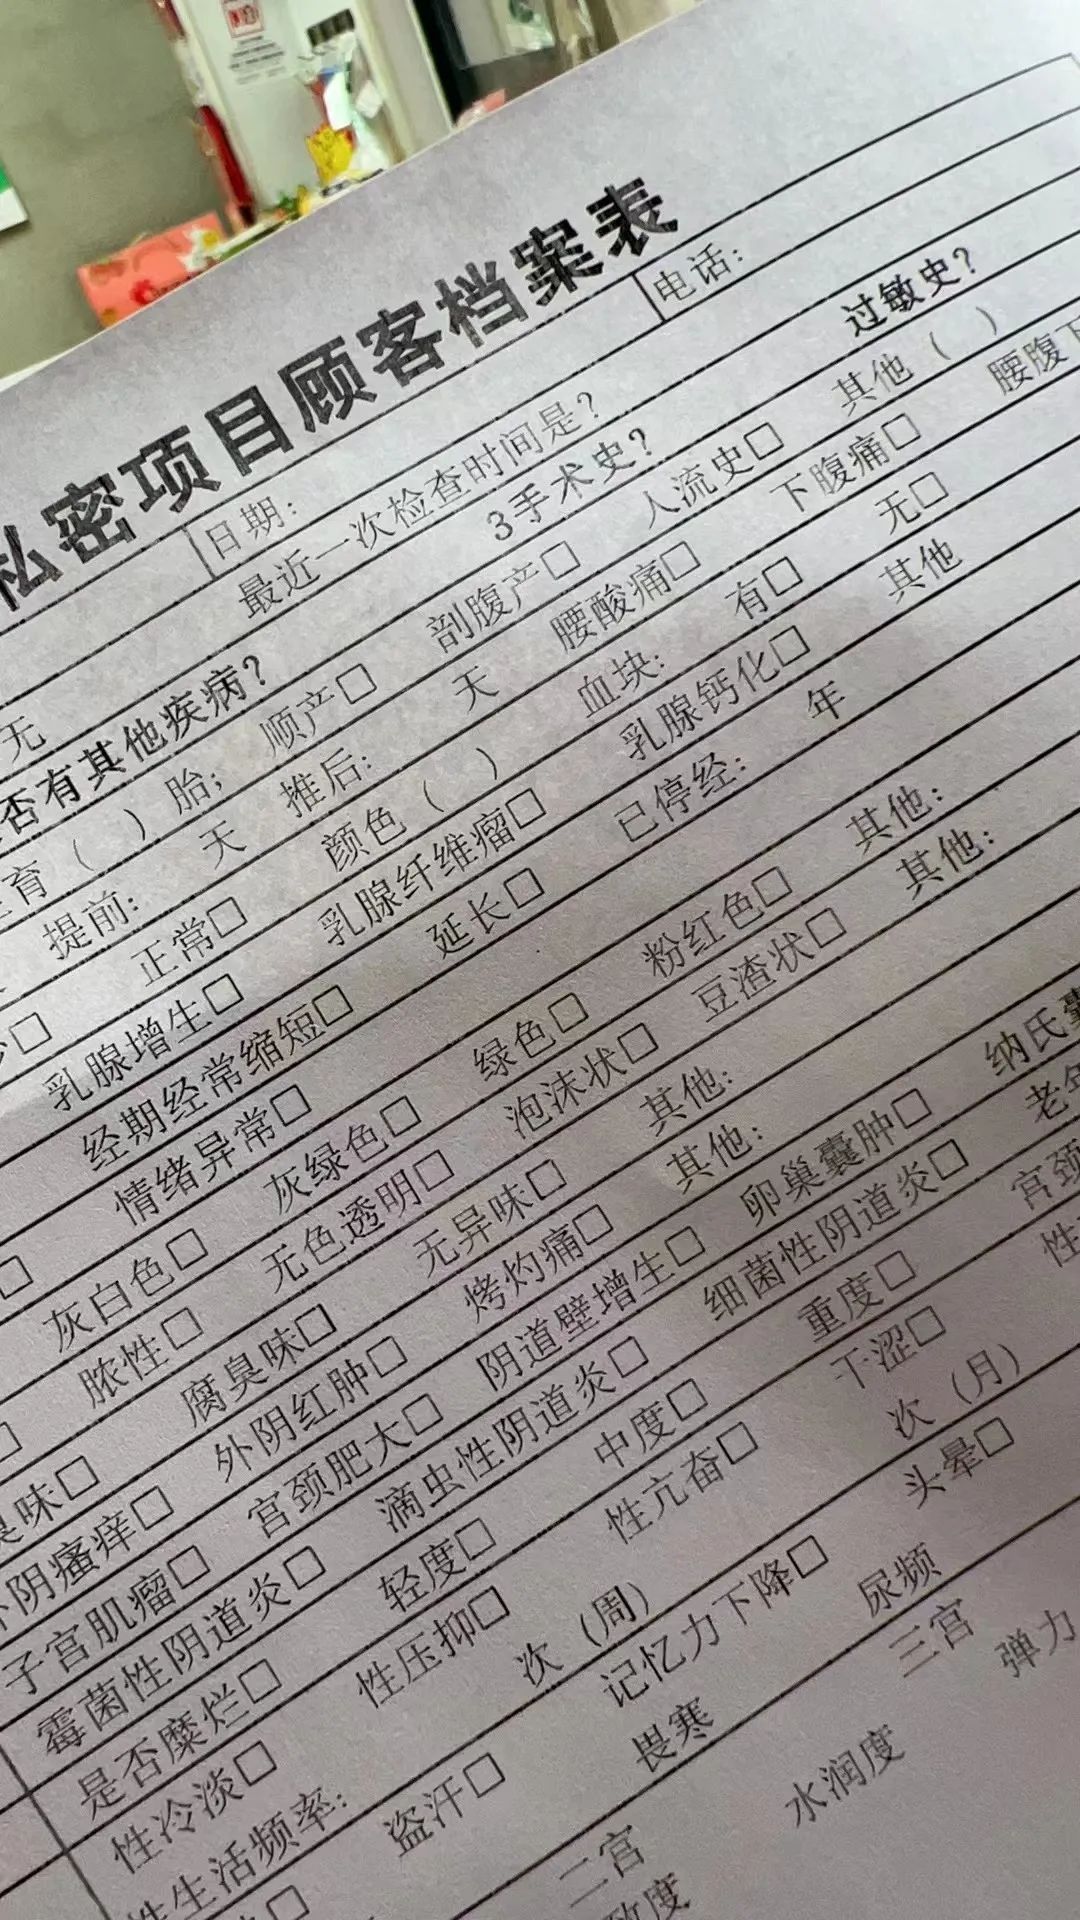 私密项目顾客档案表
日期： 电话：
无 最近一次检查时间是？
否有其他疾病？ 3手术史？ 过敏史？
育（ ）胎； 顺产□ 剖腹产□ 人流史□ 其他（ ）
提前： 天 推后： 天 腰酸痛□ 下腹痛□ 腰腹下
正常□ 颜色（ ） 血块： 有□ 无□
乳腺增生□ 乳腺纤维瘤□ 乳腺钙化□ 其他
经期经常缩短□ 延长□ 已停经： 年
情绪异常□
灰白色□ 灰绿色□ 绿色□ 粉红色□ 其他：
脓性□ 无色透明□ 泡沫状□ 豆渣状□ 其他：
臭味□ 腐臭味□ 无异味□ 其他：
外阴瘙痒□ 外阴红肿□ 烤灼痛□ 其他：
子宫肌瘤□ 宫颈肥大□ 阴道壁增生□ 卵巢囊肿□ 纳氏囊
霉菌性阴道炎□ 滴虫性阴道炎□ 细菌性阴道炎□
是否糜烂□ 轻度□ 中度□ 重度□ 宫颈
性冷淡□ 性压抑□ 性亢奋□ 干涩□
性生活频率： 次（周） 次（月）
盗汗□ 记忆力下降□ 头晕□
畏寒 尿频
二宫 三宫
水润度 弹力